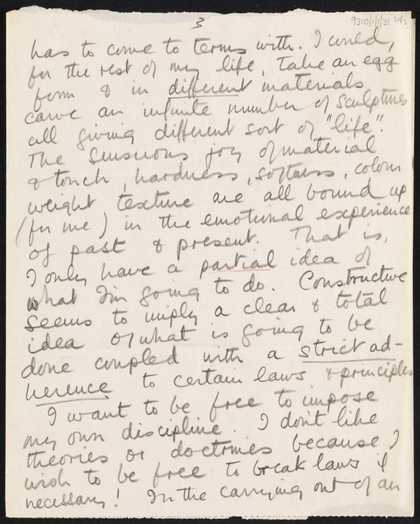 3
has to come to terms with. I could,
for the rest of my life, take an egg
form & in different materials
carve an infinite number of sculptures
all giving different sort of "life".
The sensuous joy of material
& touch, hardness, softness, colour
weight texture are all bound up
(for me) in the emotional experience
of past & present. That is,
I only have a partial idea of
what I'm going to do. Constructive
seems to imply a clear & total
idea of what is going to be
done coupled with a strict ad-
herence to certain laws & principles
I want to be free to impose
my own discipline. I don't like
theories or doctrines because I
wish to be free to break laws if
necessary! In the carrying out of an